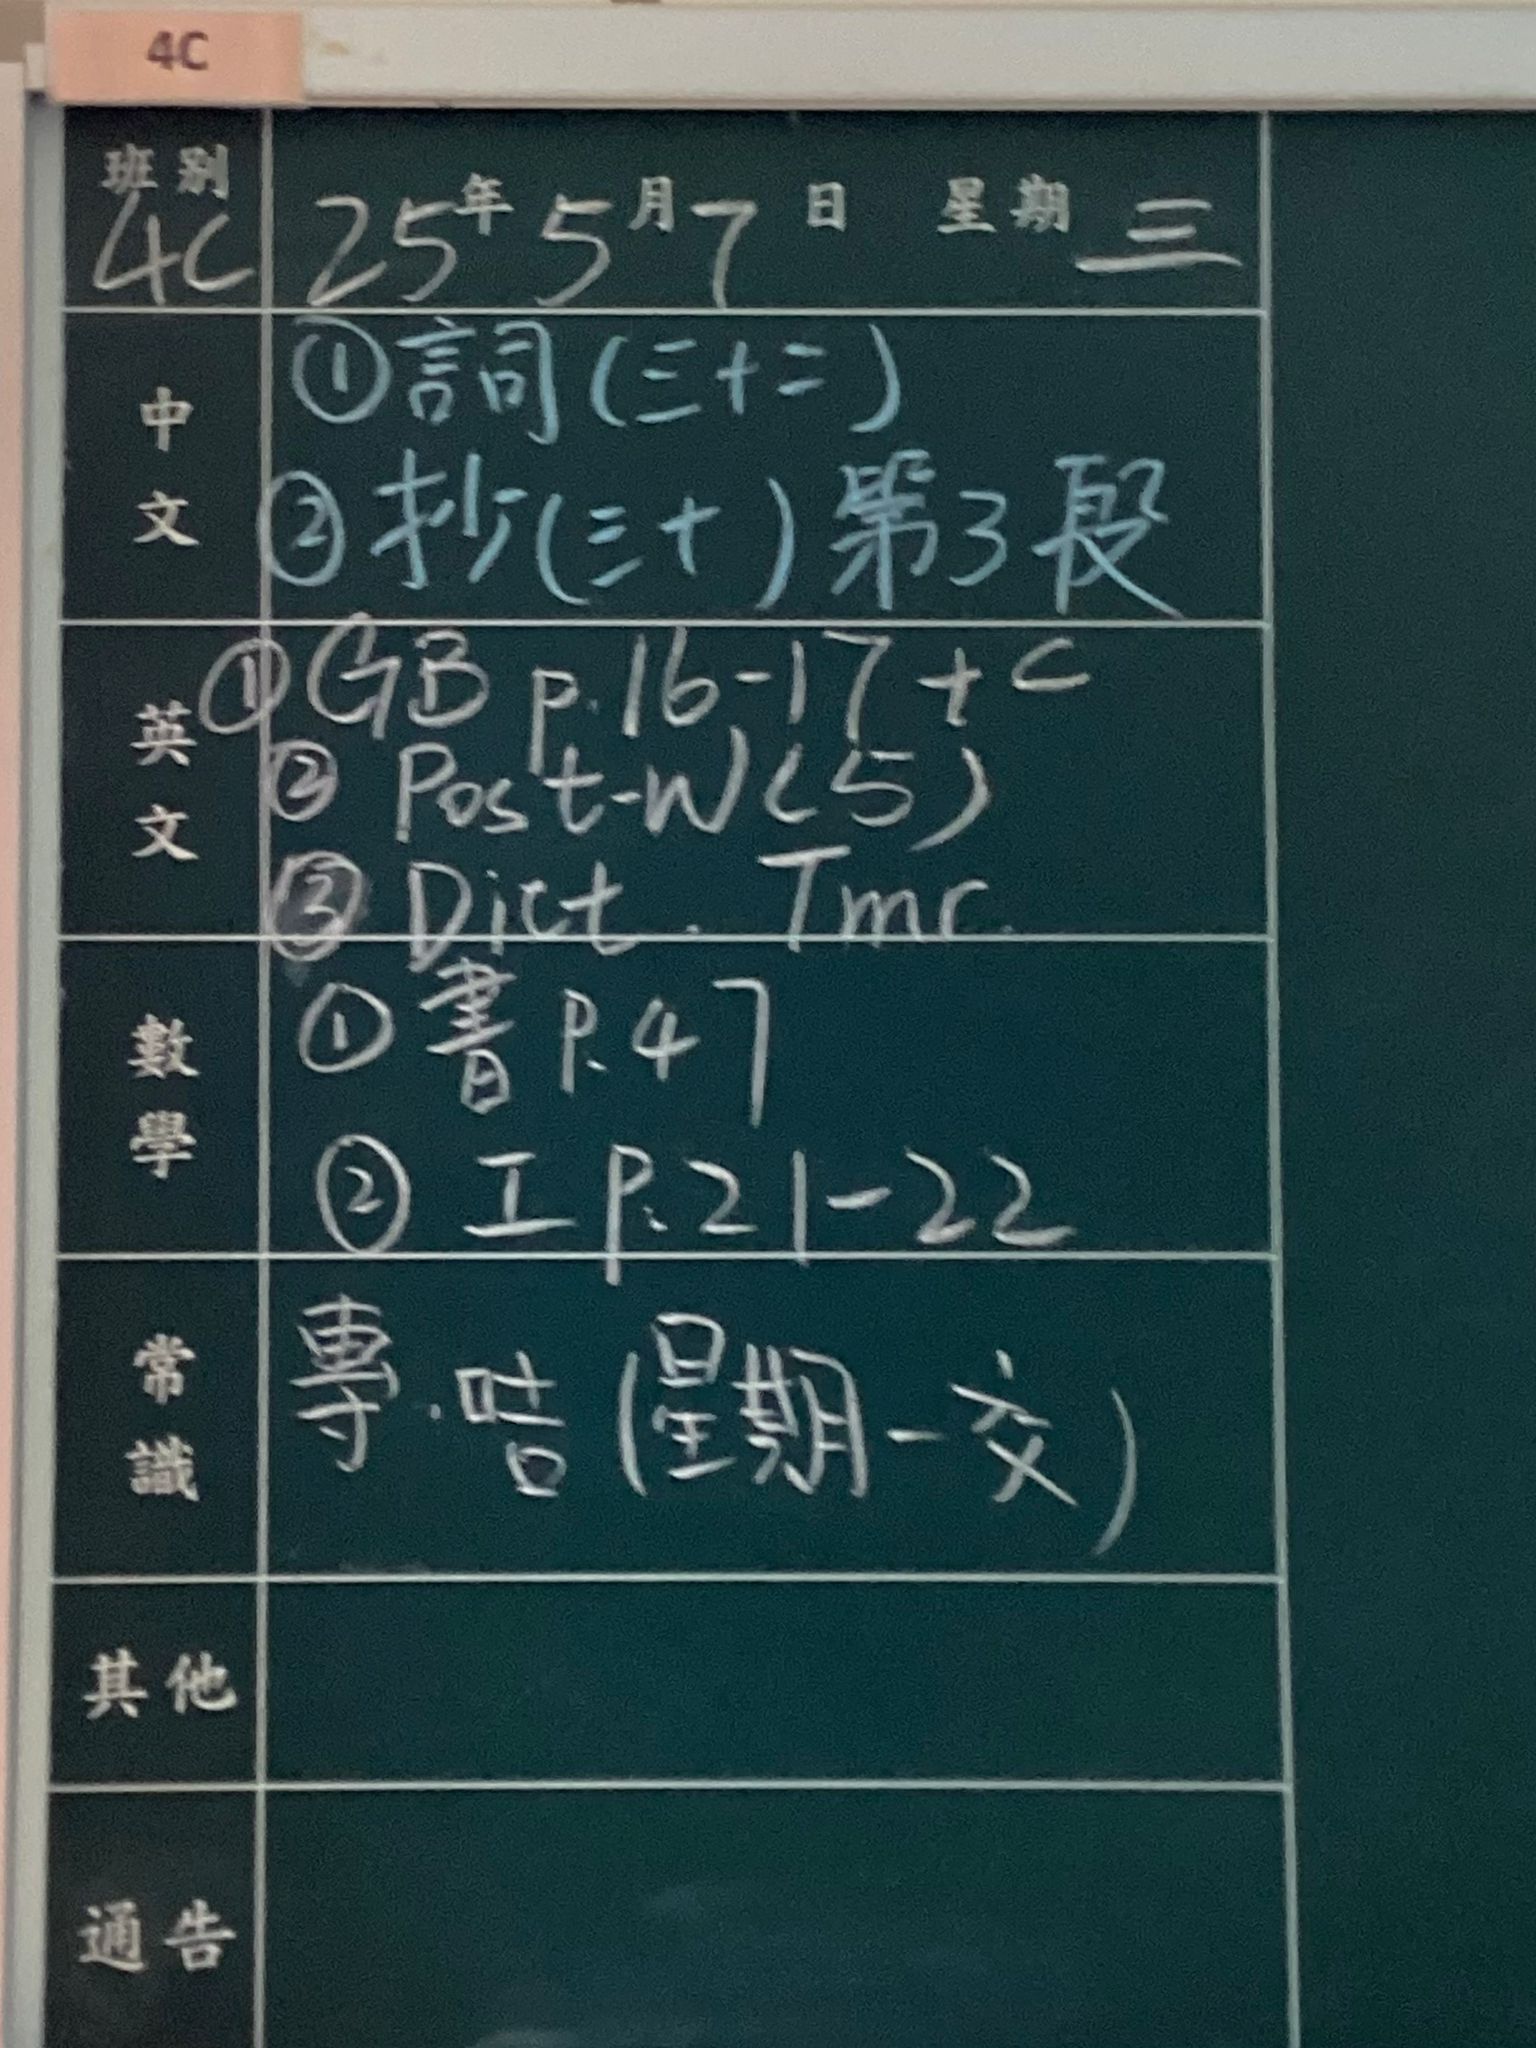 4C
班別 25年5月7日 星期三
4C
中文
①詞(三十二)
②抄(三十)第3段
英文
①GB p.16-17+C
②Post-W(5)
③Dict. Tmr.
數學
①書P.47
②工P.21-22
常識
專.咭(星期一交)
其他
通告